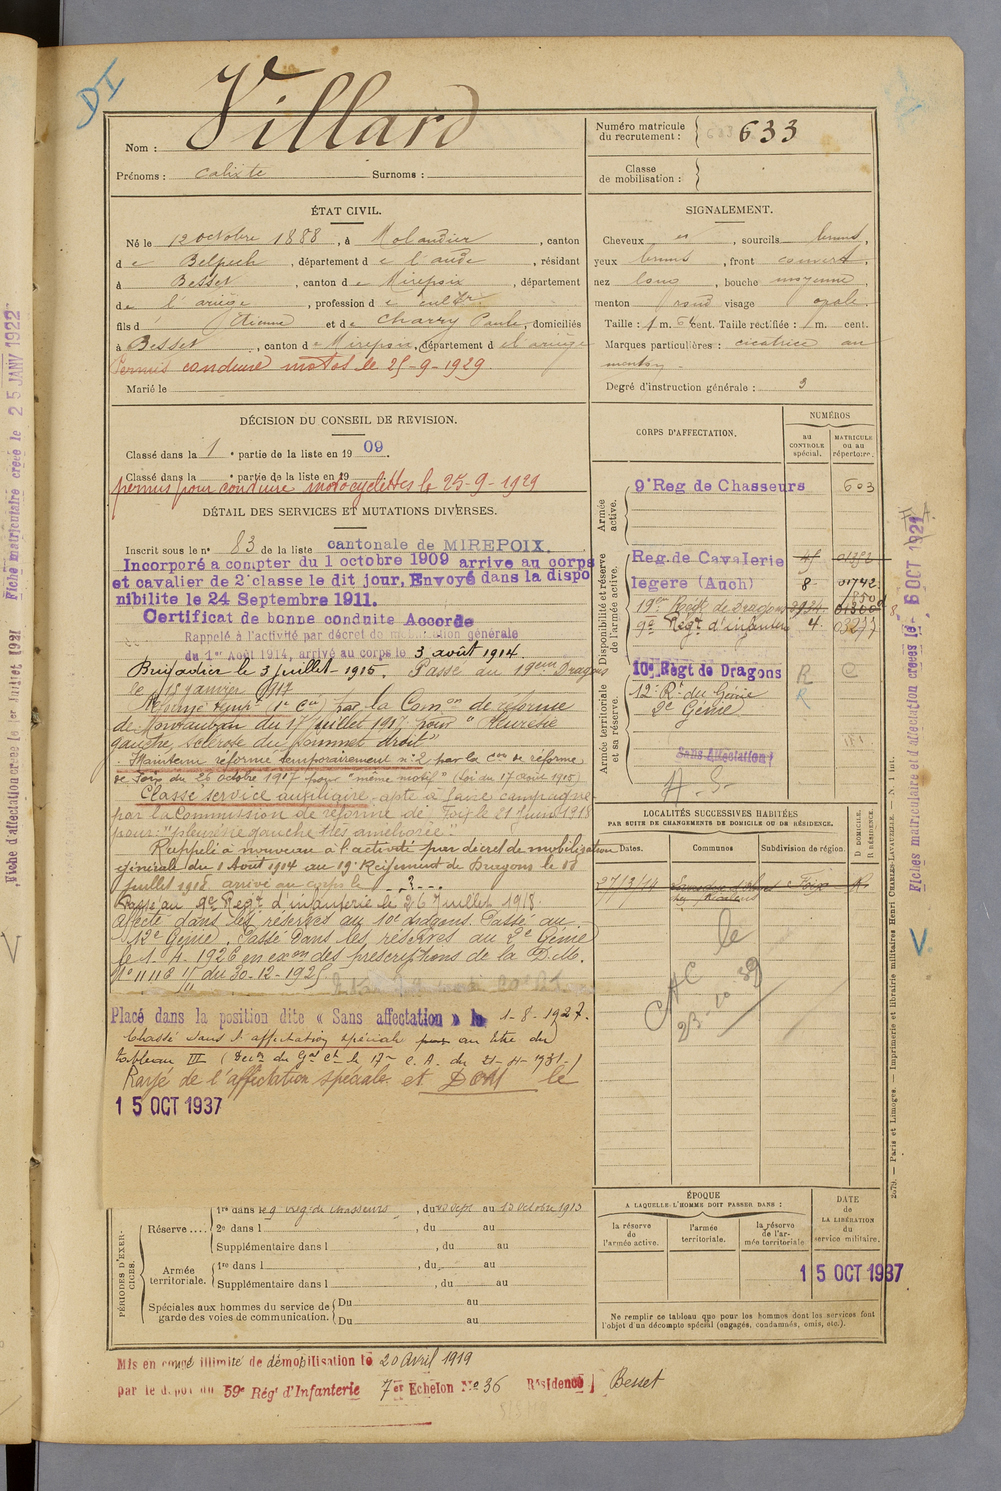 DI
Nom : Villard
Prénoms : Calixte Surnoms :
Numéro matricule du recrutement : 633
Classe de mobilisation :
ÉTAT CIVIL.
Né le 12 octobre 1888, à Molandier, canton
de Belpech, département de l'aude, résidant
à Besset, canton de Mirepoix, département
de l'ariège, profession de cultr.
fils d' Etienne et de Charry Paule, domiciliés
à Besset, canton de Mirepoix, département de l'ariège
Permis conduire motos le 25-9-1929.
Marié le
SIGNALEMENT.
Cheveux et, sourcils bruns,
yeux bruns, front couvert,
nez long, bouche moyenne,
menton rond visage ovale.
Taille : 1 m. 64 cent. Taille rectifiée : 1 m. cent.
Marques particulières : cicatrice au
menton.
Degré d'instruction générale : 3
DÉCISION DU CONSEIL DE REVISION.
Classé dans la 1e partie de la liste en 1909.
Classé dans la e partie de la liste en 19
permis pour conduire motocyclettes le 25-9-1929
DÉTAIL DES SERVICES ET MUTATIONS DIVERSES.
Inscrit sous le n° 83 de la liste cantonale de MIREPOIX.
Incorporé a compter du 1 octobre 1909 arrive au corps
et cavalier de 2e classe le dit jour, Envoyé dans la dispo
nibilite le 24 Septembre 1911.
Certificat de bonne conduite Accorde
Rappelé à l'activité par décret de mobilisation générale
du 1er Août 1914, arrivé au corps le 3 août 1914.
Brigadier le 3 juillet 1915. Passé au 19eme Dragons
le 15 janvier 1917
Réformé temp. (1e Cie) par la Comon de réforme
de Montauban du 17 juillet 1917 pour "Pleurésie
gauche, sclérose du sommet droit"
Maintenu réformé temporairement n°2 par la Con de réforme
de Foix du 26 octobre 1917 pour "même motif" (Loi du 17 août 1915)
Classé service auxiliaire apte à faire campagne
par la Commission de réforme de Foix le 21 Juin 1918
pour : "pleurésie gauche très améliorée"
Rappelé à nouveau à l'activité par décret de mobilisation
générale du 1 Août 1914 au 19e Régiment de Dragons le
juillet 1918 arrivé au corps le - - ? - - -
Passé au 9e Régt d'infanterie le 26 Juillet 1918.
affecté dans les réserves au 10e dragons. Passé au
12e Génie. Passé dans les réserves au 2e Génie
le 1-4-1926 en exon des prescriptions de la D.M.
N° 11118 du 30-12-1925
Placé dans la position dite « Sans affectation » le 1-8-1927.
Classé dans l'affectation spéciale au titre du
tableau III (Décon du Gal Ct le 17e C.A. du 21-4-1931-)
Rayé de l'affectation spéciale et DOM le
15 OCT 1937
CORPS D'AFFECTATION.
NUMÉROS
au CONTROLE spécial.
MATRICULE ou au répertoire.
Armée active.
9e Reg de Chasseurs 603
Disponibilité et réserve de l'armée active.
Reg. de Cavalerie
legere (Auch) 8 01742
19em Régt de Dragons
9e Régt d'infanterie 4. 03277
Armée territoriale et sa réserve
10e Régt de Dragons R C
12e Rt du Génie R
2e Génie
Sans Affectation
A.S.
LOCALITÉS SUCCESSIVES HABITÉES
PAR SUITE DE CHANGEMENTS DE DOMICILE OU DE RÉSIDENCE.
Dates. Communes Subdivision de région. D DOMICILE. R RÉSIDENCE
27/3/14 Foix R
CAC le
23-10-39
PÉRIODES D'EXERCICES.
Réserve....
1re dans le 9 Reg. de Chasseurs, du Sept au 13 Octobre 1913
2e dans l , du au
Supplémentaire dans l , du au
Armée territoriale.
1re dans l , du au
Supplémentaire dans l , du au
Spéciales aux hommes du service de garde des voies de communication.
Du au
Du au
ÉPOQUE
A LAQUELLE L'HOMME DOIT PASSER DANS :
la réserve de l'armée active.
l'armée territoriale.
la réserve de l'armée territoriale
DATE DE LA LIBÉRATION du service militaire.
15 OCT 1937
Ne remplir ce tableau que pour les hommes dont les services font
l'objet d'un décompte spécial (engagés, condamnés, omis, etc.).
Mis en congé illimité de démobilisation le 20 Avril 1919
par le dépôt du 59e Rég' d'Infanterie 7er Echelon No 36 Résidence } Besset
Fiche d'affectation créée le 1er Juillet 1931
Fiche matriculaire creée le 25 JANV 1922
Fiches matriculaire et d'affectation creées le 6 OCT 1921
V.
2079. — Paris et Limoges. — Imprimerie et librairie militaires Henri CHARLES-LAVAUZELLE. — N. 1 int.